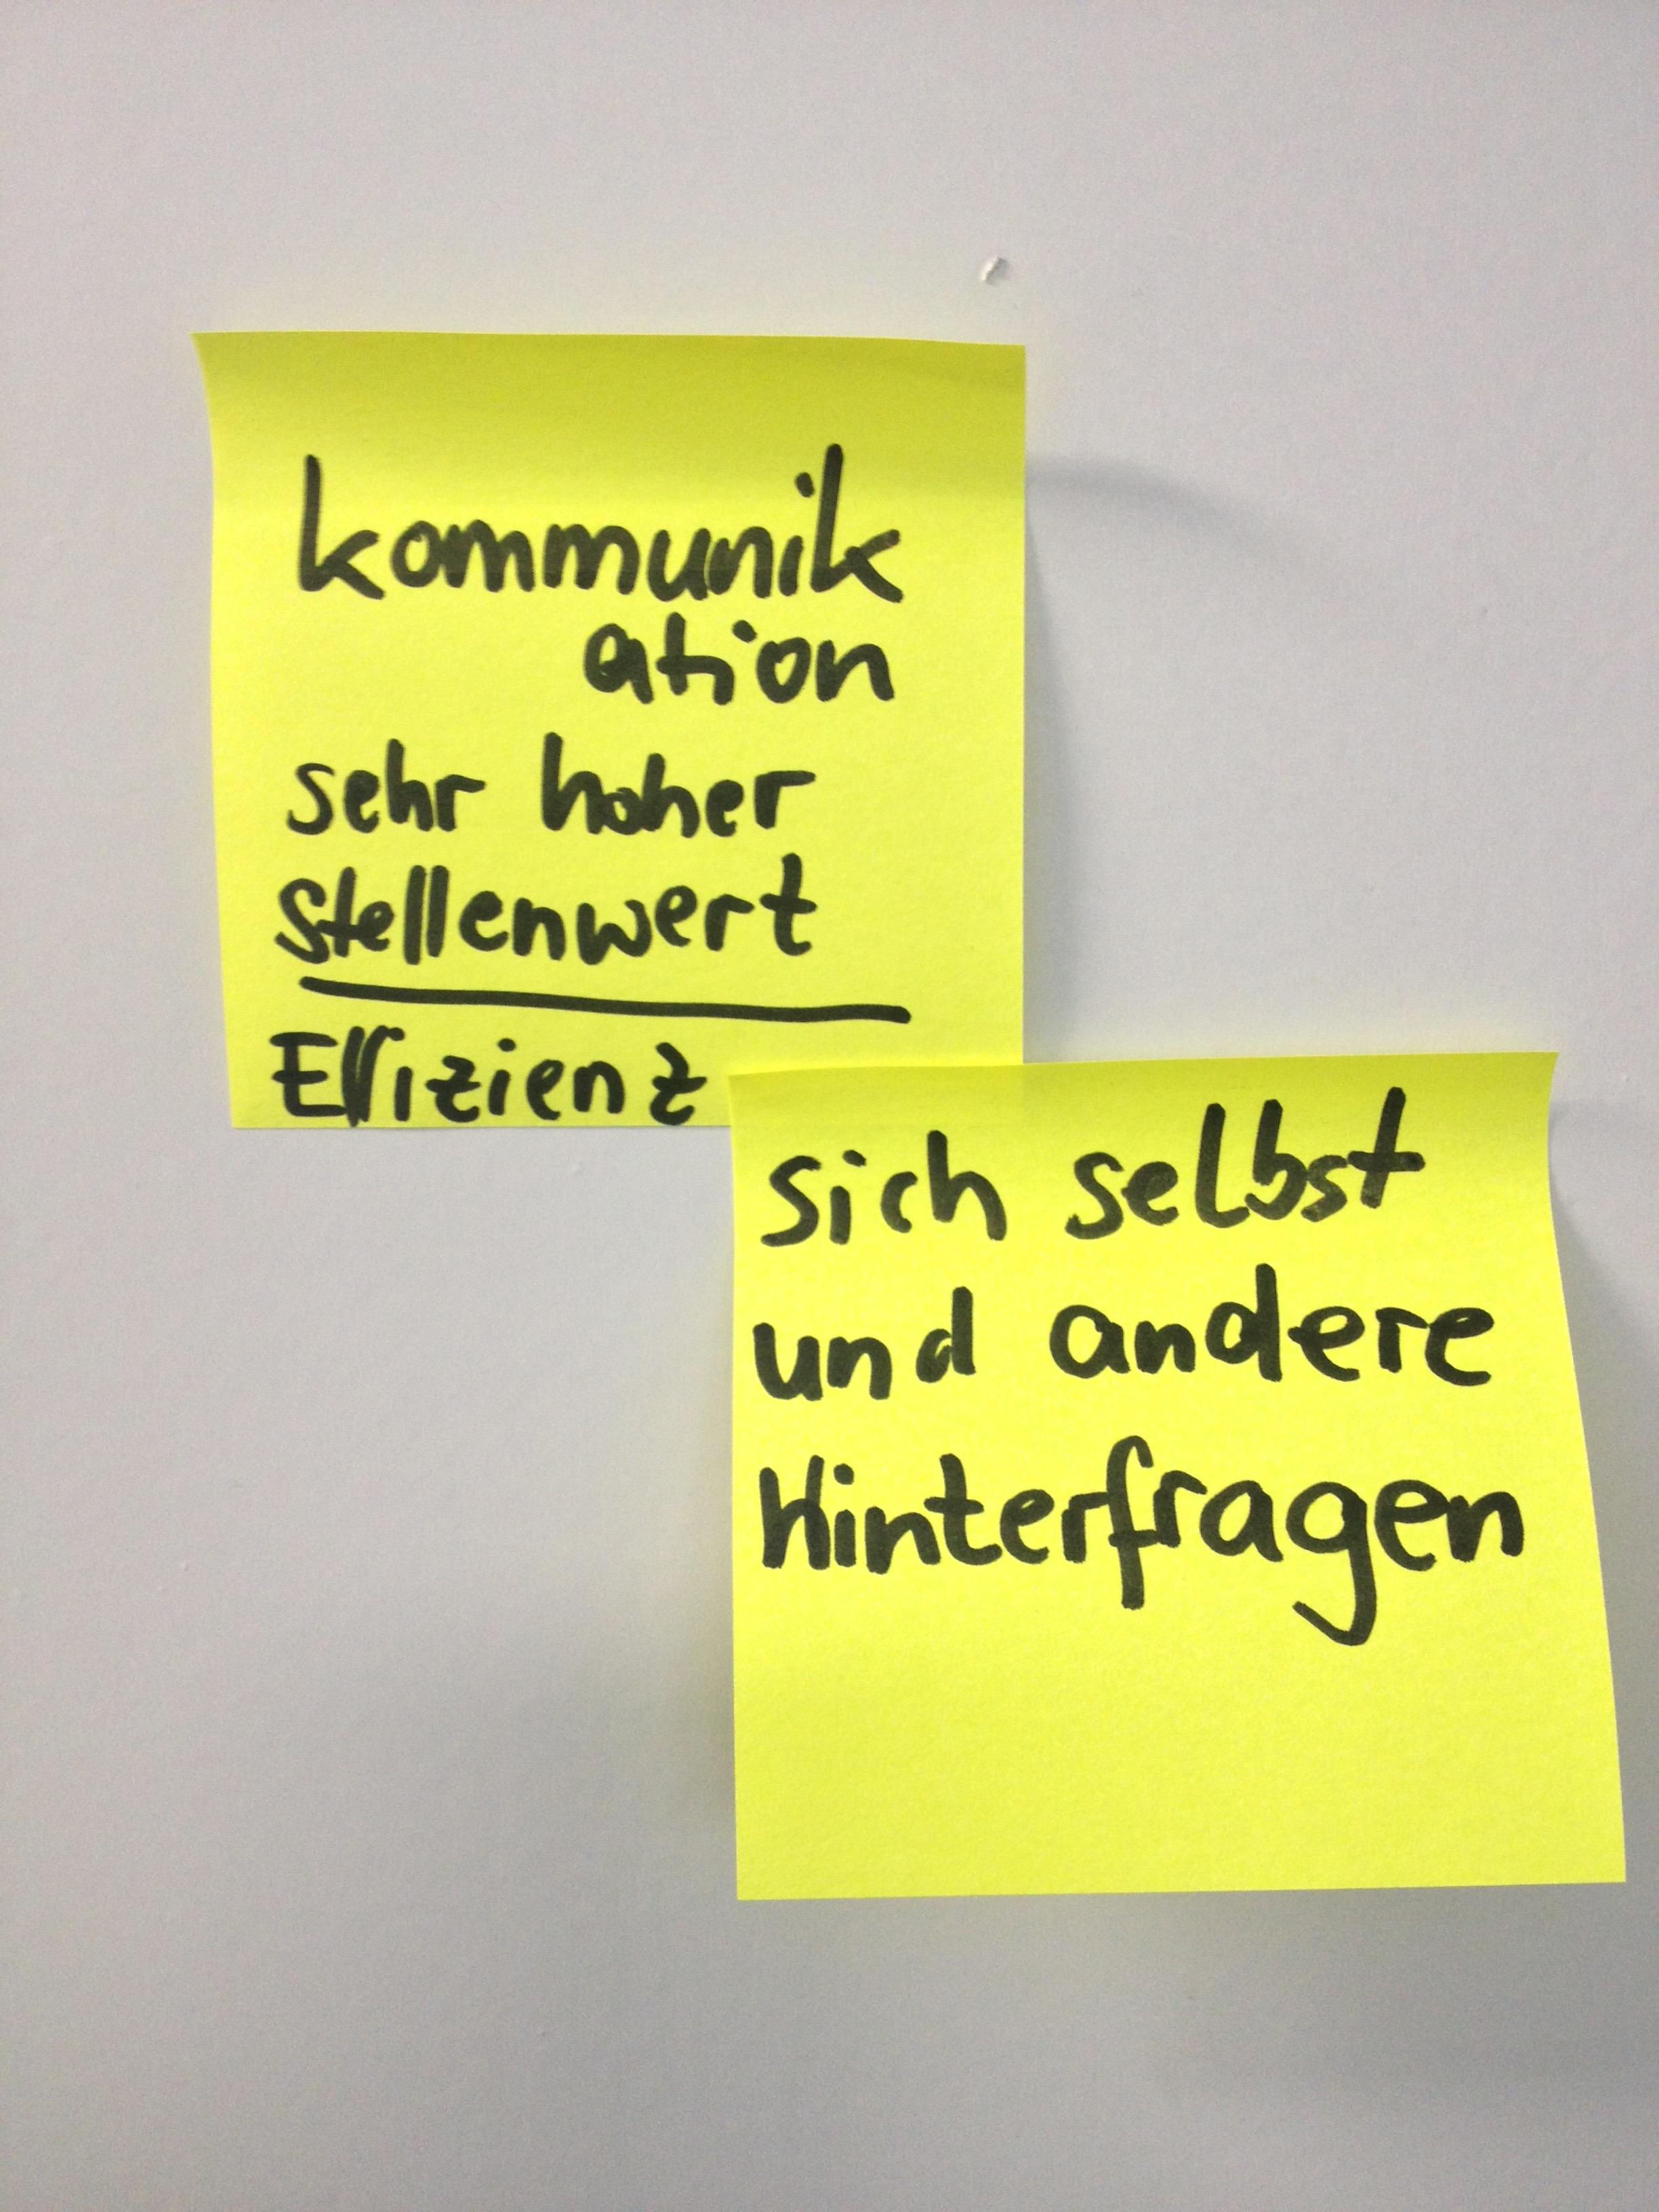 kommunik
ation
sehr hoher
Stellenwert
Effizienz
sich selbst
und andere
Hinterfragen